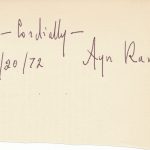 — Cordially —
/20/72 Ayn Ra